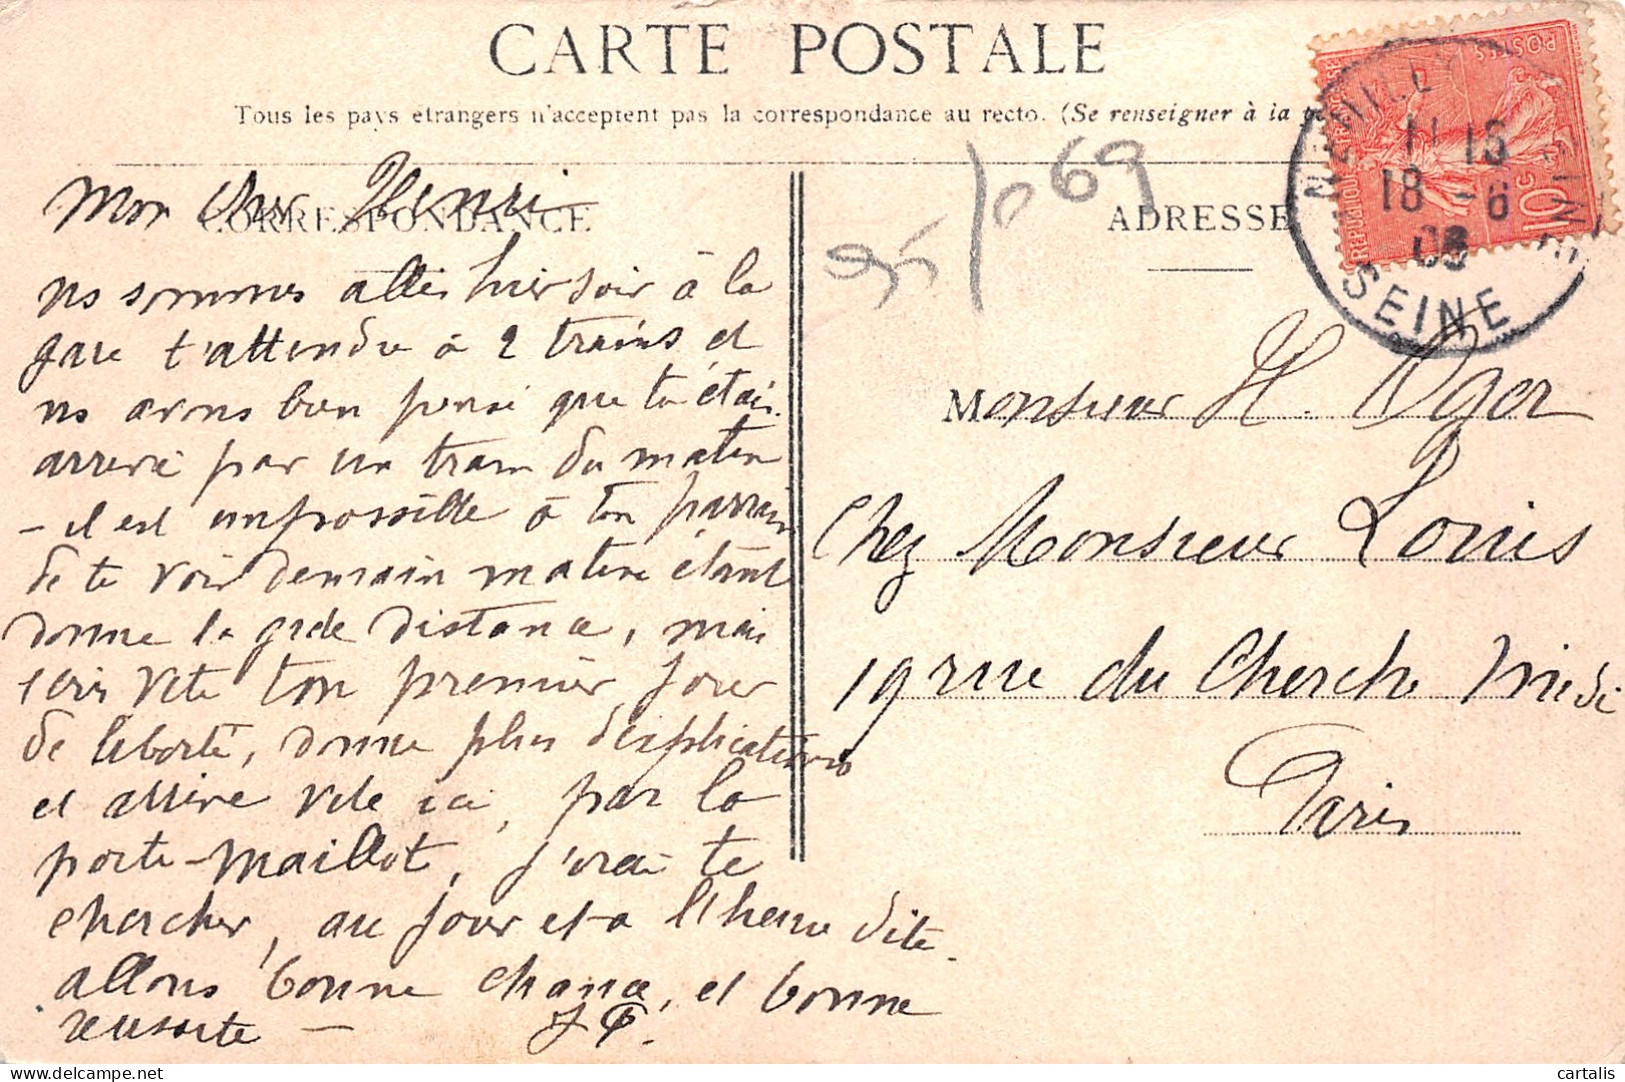 CARTE POSTALE
Tous les pays étrangers n'acceptent pas la correspondance au recto. (Se renseigner à la
CORRESPONDANCE
ADRESSE
Mon cher Henri
ns sommes allés hier soir à la
gare t'attendre à 2 trains et
ns avons bien pensé que tu étais
arrivé par un train du matin
- il est impossible à ton parrain
de te voir demain matin étant
donné la gde distance, mais
écris vite ton premier jour
de liberté, donne plus d'explications
et arrive vite ici, par la
porte-Maillot, j'irai te
chercher, au jour et à l'heure dite.
allons bonne chance, et bonne
réussite -
95/069
Monsieur H. Oger
Chez Monsieur Louis
19 rue du Cherche Midi
Paris
POSTES
REPUBLIQUE FRANÇAISE
10 c
NEUILLY
SEINE
11 15
18 -6
cartalis
delcampe.net